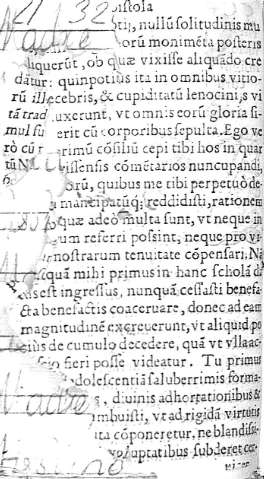 21 32 pistola
Nadre otij, nullũ solitudinis mu
orũ monimẽta posteris
liquerũt, ob quæ vixisse aliquãdo cre
datur: quinpotius ita in omnibus vitio-
rũ illecebris, & cupiditatũ lenocinijs vi
tã traduxerunt, vt omnis eorũ gloria si-
mul fuerit cũ corporibus sepulta. Ego ve
rò cũ primum cõsiliũ cepi tibi hos in quar
tũ cõmẽtarios nuncupandi,
6 orũ, quibus me tibi perpetuò de-
mancipatũq; reddidisti, rationem
quæ adeò multa sunt, vt neque in
referri possint, neque pro vi-
nostrarum tenuitate cõpensari. Nã
quã mihi primus in hanc scholã di
es est ingressus, nunquã cessasti benefa-
cta benefactis coaceruare, donec ad eam
magnitudinẽ excreuerunt, vt aliquid po
tius de cumulo decedere, quã vt vlla ac-
fieri posse videatur. Tu primus
adolescentiã saluberrimis forma-
diuinis adhortationibus &
imbuisti, vt ad rigidã virtutis
ita cõponeretur, ne blandissi-
voluptatibus subderet